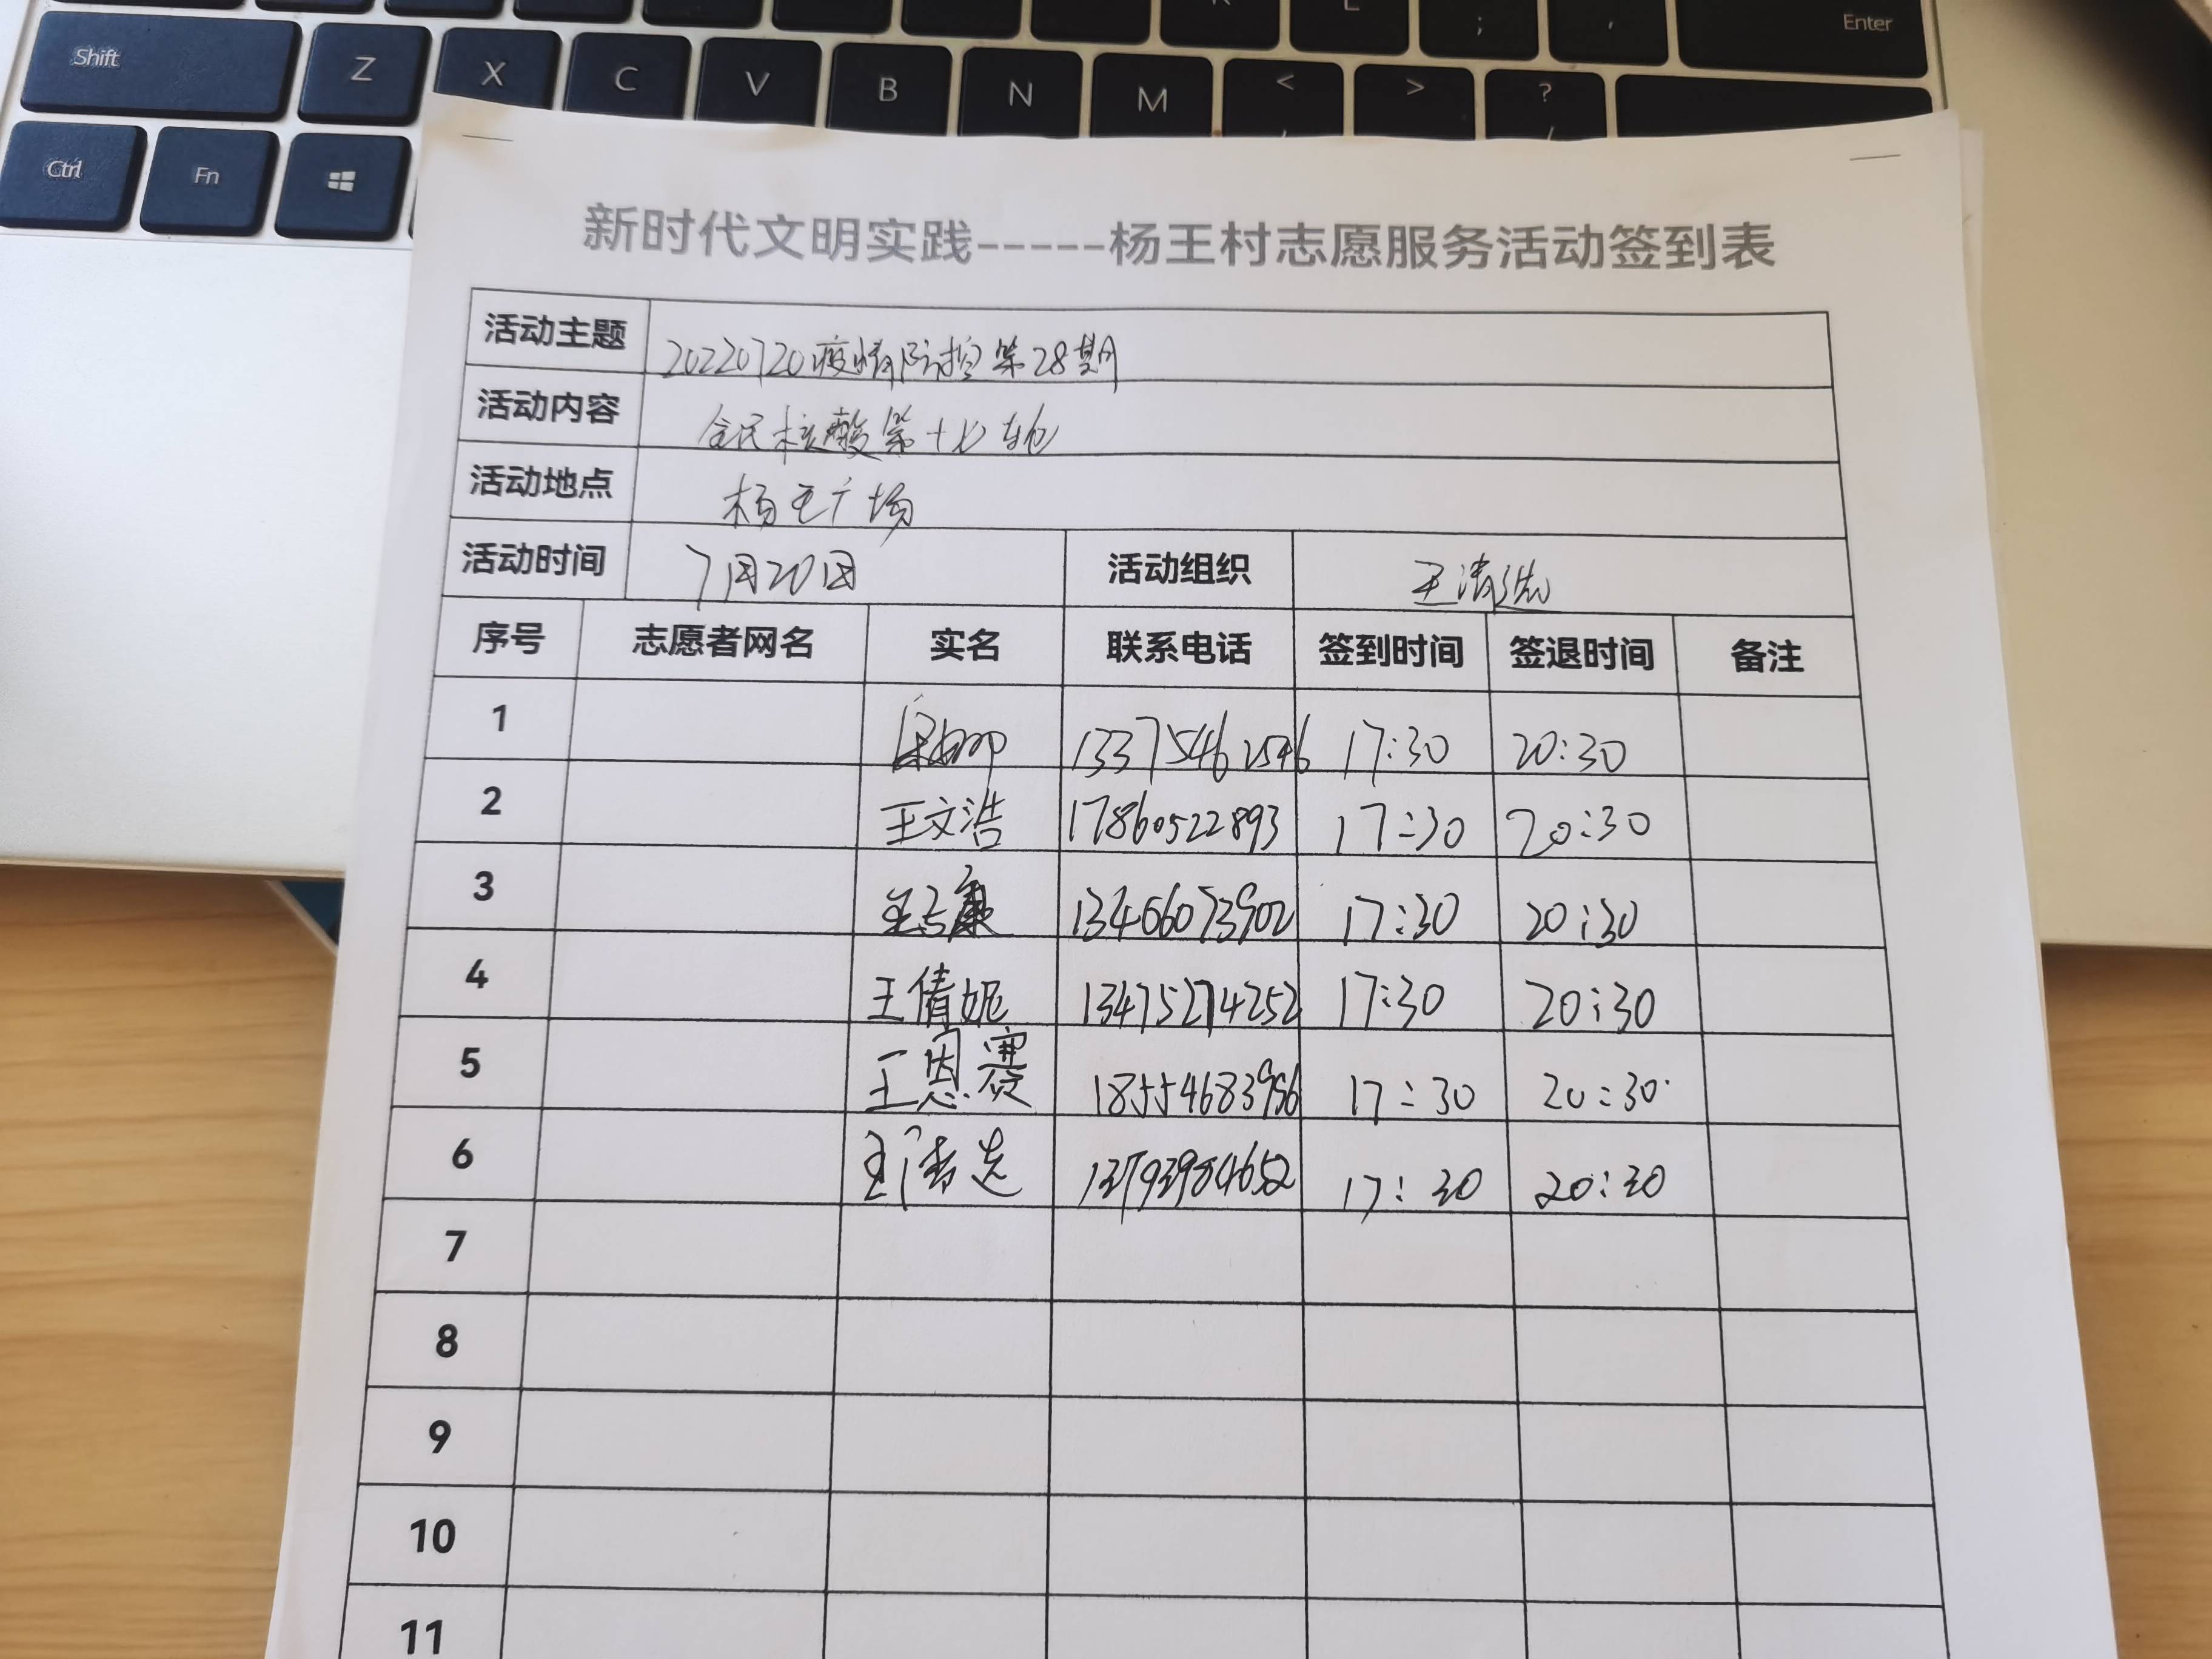 Enter
Shift Z X C V B N M < > ?
Ctrl Fn
新时代文明实践-----杨王村志愿服务活动签到表
活动主题 20220720疫情防控第28期
活动内容 全民核酸第十七轮
活动地点 杨王广场
活动时间 7月20日 活动组织 王清选
序号 志愿者网名 实名 联系电话 签到时间 签退时间 备注
1 13375462546 17:30 20:30
2 王文浩 17860522893 17:30 20:30
3 13466073902 17:30 20:30
4 王倩妮 13475274252 17:30 20:30
5 王恩赛 18554683956 17:30 20:30
6 王清选 13793984652 17:30 20:30
7
8
9
10
11